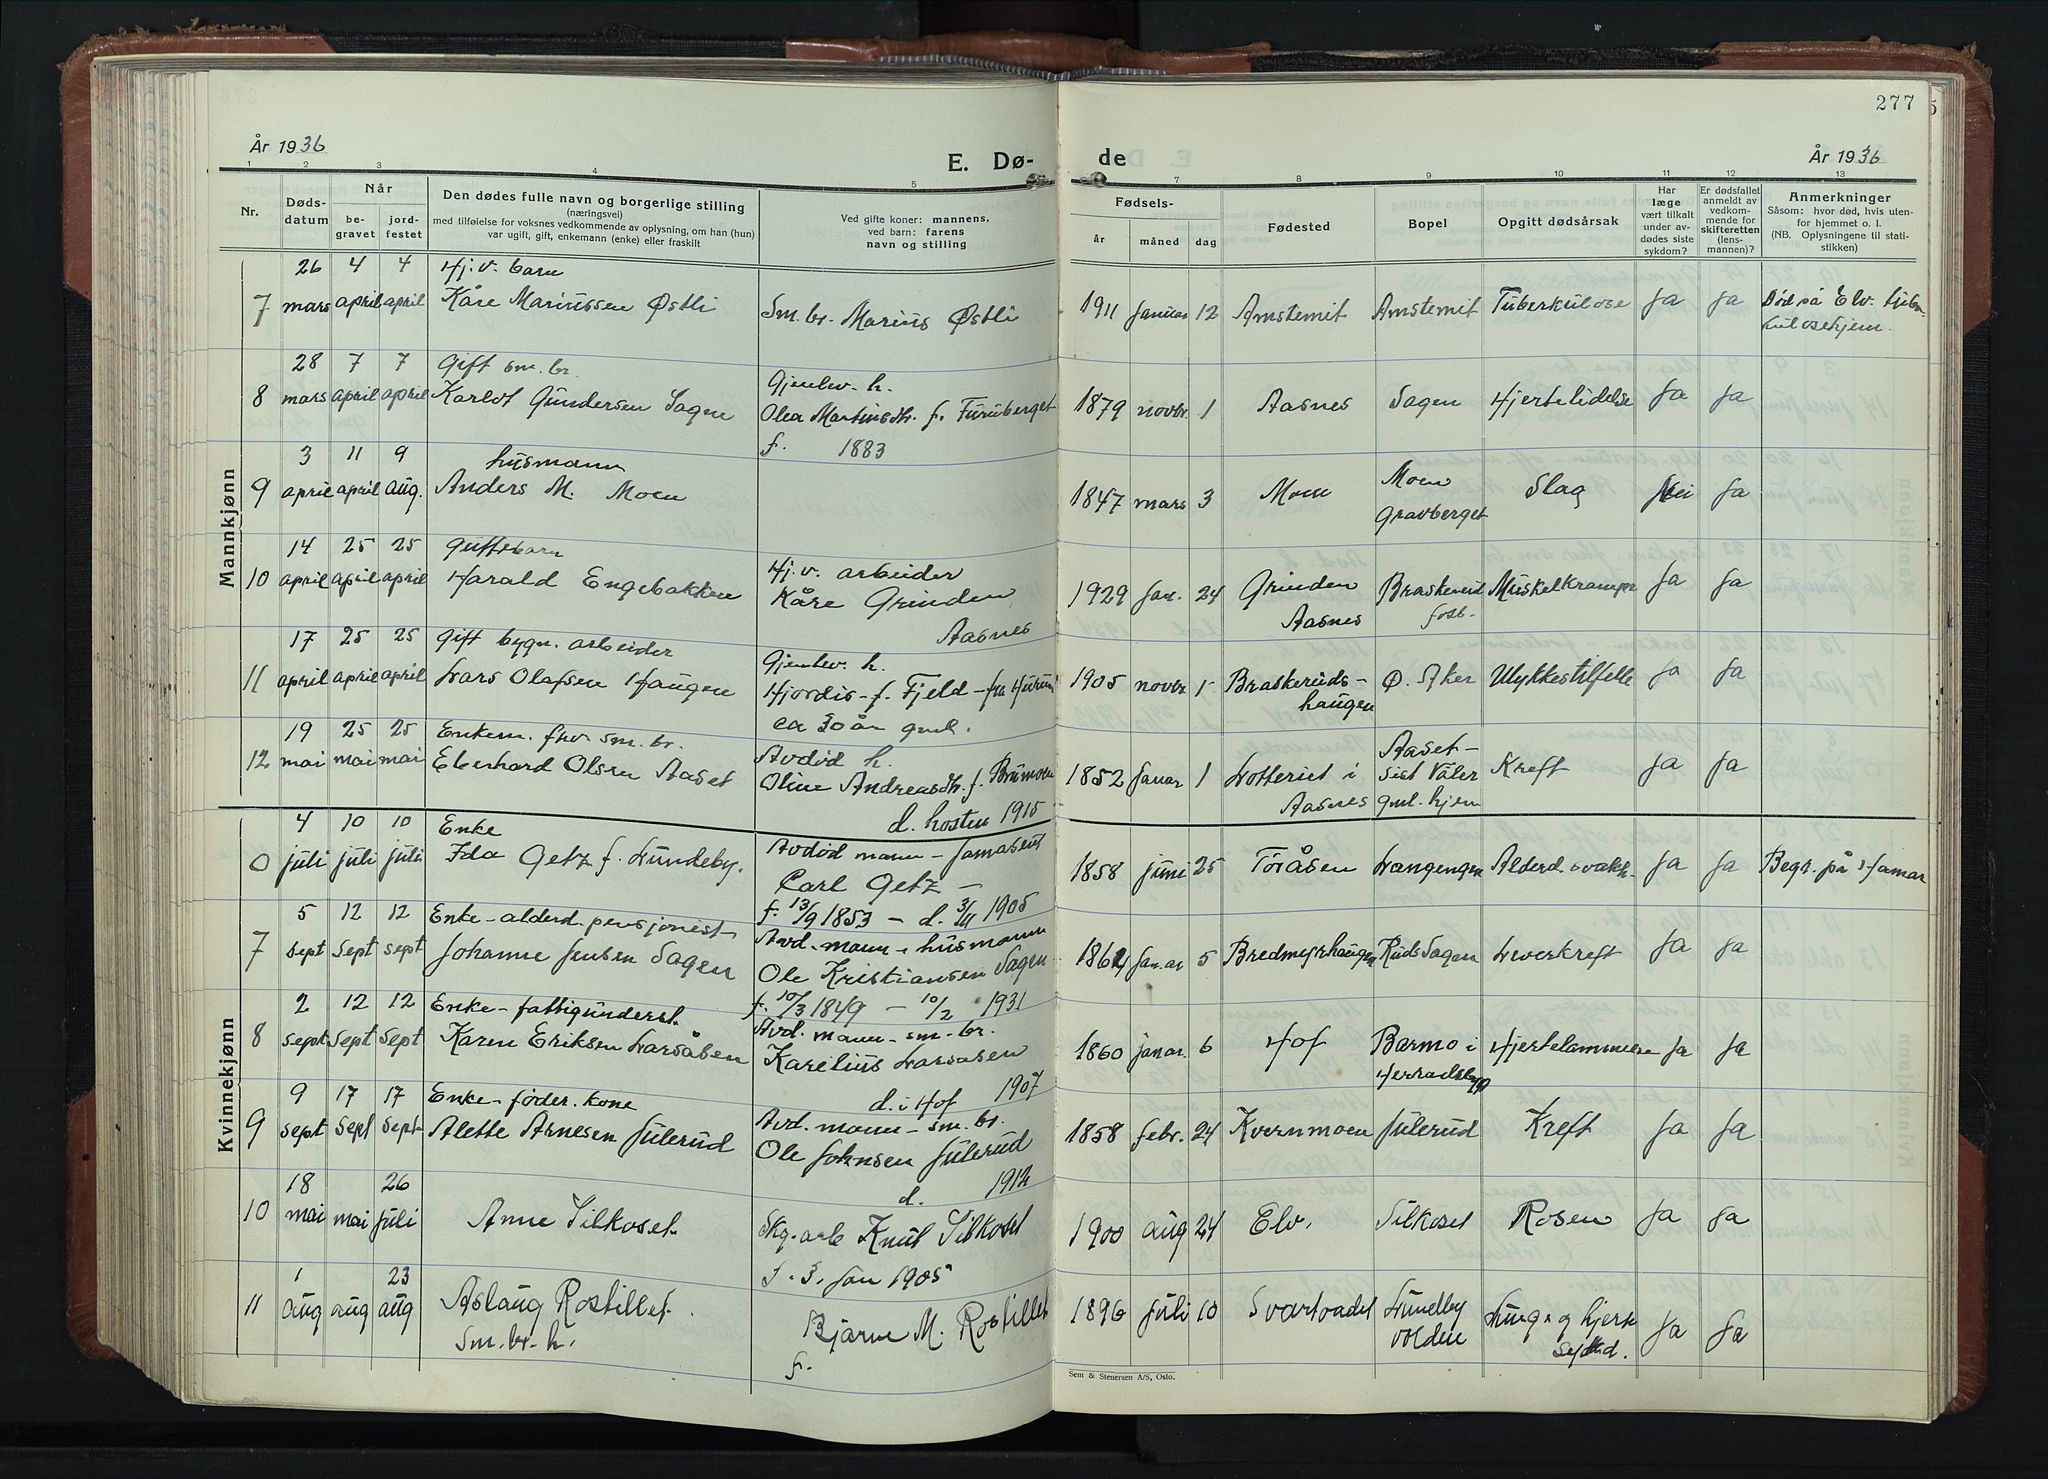 277
År 1936
E. Dø-
de
År 1936
1 2 3 4 5 7 8 9 10 11 12 13
Nr.
Døds-
datum
Når
be-
gravet
jord-
festet
Den dødes fulle navn og borgerlige stilling
(næringsvei)
med tilføielse for voksnes vedkommende av oplysning, om han (hun)
var ugift, gift, enkemann (enke) eller fraskilt
Ved gifte koner: mannens,
ved barn: farens
navn og stilling
Fødsels-
år måned dag
Fødested
Bopel
Opgitt dødsårsak
Har
læge
vært tilkalt
under av-
dødes siste
sykdom?
Er dødsfallet
anmeldt av
vedkom-
mende for
skifteretten
(lens-
mannen)?
Anmerkninger
Såsom: hvor død, hvis uten-
for hjemmet o. l.
(NB. Oplysningene til stati-
stikken)
Mannkjønn
26 4 4 Hj.v. barn
7 mars april april Kåre Mariussen Østli Sm.br. Marius Østli 1911 Januar 12 Arnstemit Arnstemit Tuberkulose Ja Ja Død på Elv. tuber-
kulosehjem.
28 7 7 Gift sm. br.
8 mars april april Karlot Gundersen Sagen
Gjenlev. h.
Olea Martinsdtr. f. Furuberget
f. 1883
1879 novbr. 1 Aasnes Sagen Hjertelidelse Ja Ja
3 11 9 husmann
9 april april aug. Anders M. Moen 1847 mars 3 Moen Moen
Gravberget
Slag Nei Ja
14 25 25 Guttebarn
10 april april april Harald Engebakken
Hj.v. arbeider
Kåre Grinden
Aasnes
1929 Jan. 24 Grinden
Aasnes
Braskerud
fosb.
Muskelkrampe Ja Ja
17 25 25 Gift bygn. arbeider
11 april april april Lars Olafsen Haugen
Gjenlev. h.
Hjordis f. Fjeld - fra Hurum
ca 30 år gml.
1905 novbr 1 Braskeruds-
haugen
Ø. Aker Ulykkestilfelle Ja Ja
19 25 25 Enkem. fhv. sm. br.
12 mai mai mai Eberhard Olsen Aaset
Avdød h.
Oline Andreasdtr. f. Brumoen
d. høsten 1915
1852 Januar 1 Lotteriet i
Aasnes
Aaset -
sist Våler
gml. hjem
Kreft Ja Ja
Kvinnekjønn
4 10 10 Enke
0 juli juli juli Ida Getz f. Lundeby.
Avdød mann -
Carl Getz -
f. 13/9 1853 - d. 1905
1858 juni 25 Toråsen Længengen Alderd. svakh. Ja Ja Begr. på Hamar
5 12 12 Enke - alderd. pensjonist
7 sept sept sept Johanne Jensen Sagen
Avd. mann - husmann
Ole Kristiansen Sagen
f. 10/3 1849 - 10/2 1931
1864 januar 5 Bredmyrhaugen Ruds Sagen Leverkreft Ja Ja
2 12 12 Enke - fattigunderst.
8 sept sept sept Karen Eriksen Larsåsen
Avd. mann - sm. br.
Karelius Larsåsen
d. i Hof 1907
1860 januar. 6 Hof Barmo i
Herradsbygd
Hjertelammelse Ja Ja
9 17 17 Enke - føder. kone
9 sept sept sept Alette Arnesen Julerud
Avd. mann - sm. br.
Ole Johnsen Julerud
d. 1914
1858 febr. 24 Kvernmoen Julerud Kreft Ja Ja
18 26
10 mai mai juli Anne Silkoset
Skg. arb Knut Silkoset
f. 3. Jan 1905
1900 aug 24 Elv. Silkoset Rosen Ja Ja
1 23
11 aug aug aug Aslaug Rostillet.
Sm. br. h.
Bjarne M. Rostillet
f.
1896 juli 10 Svartvadet Lundby
volden
Lunge og hjerte
Ja Ja
Sem & Stenersen A/S, Oslo.